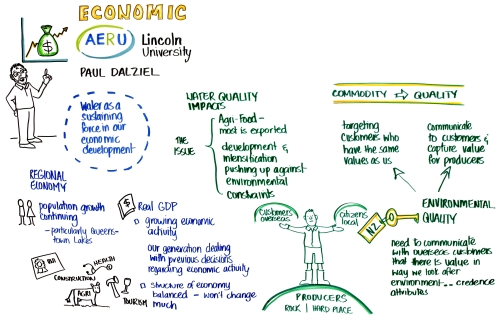 ECONOMIC
AERU
Lincoln
University
PAUL DALZIEL
Water as a
sustaining
force in our
economic
development
REGIONAL
ECONOMY
population growth
continuing
- particularly Queens-
town Lakes
HEALTH
CONSTRUCTION
AGRI
TOURISM
$ Real GDP
growing economic
activity
our generation dealing
with previous decisions
regarding economic activity
structure of economy
balanced - won't change
much
WATER QUALITY
IMPACTS
THE
ISSUE
Agri-food -
most is exported
development &
intensification
pushing up against
environmental
constraints
customers
overseas
citizens
local
PRODUCERS
ROCK | HARD PLACE
COMMODITY ⇒ QUALITY
targeting
customers who
have the same
values as us
Communicate
to customers &
capture value
for producers
NZ
ENVIRONMENTAL
QUALITY
need to communicate
with overseas customers
that there is value in
way we look after
environment... credence
attributes